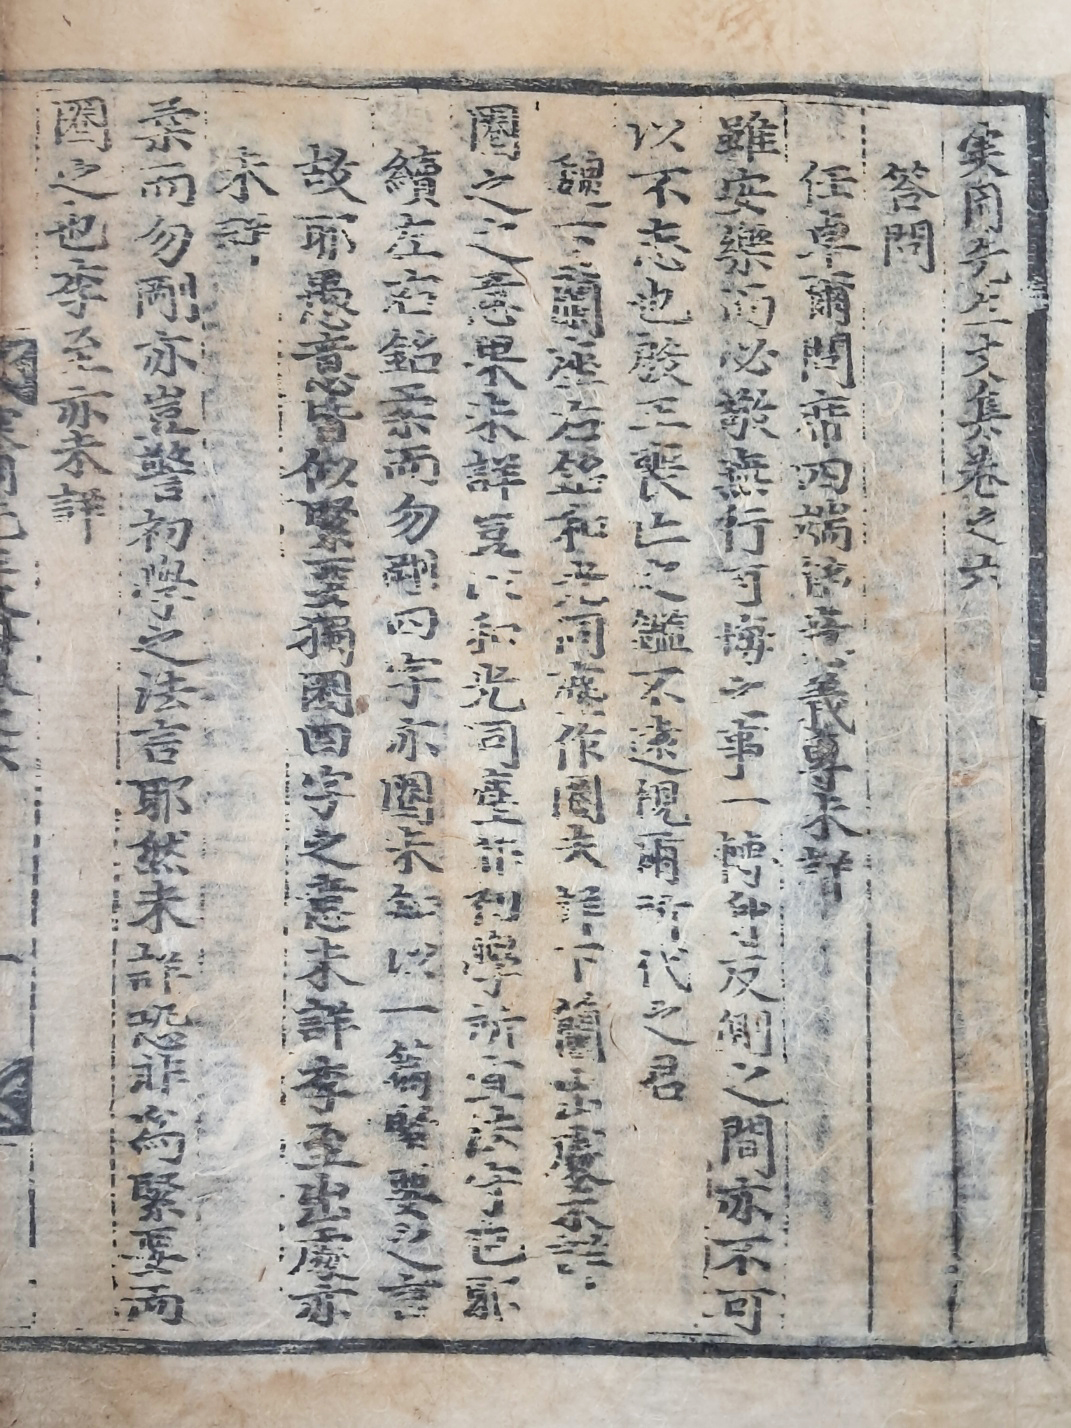 寒岡先生文集卷之六
答問
任卓爾問席四端語音義尊未詳
雖安樂而必敬無行可悔之事一轉身反側之間亦不可
以不志也殷王喪亡之鑑不遠視爾所代之君
魏下蘭座右銘和光同塵作圈夫詳下蘭出處未詳
圈之之意果未詳豈以和光同塵非初學所宜法守也耶
續左右銘柔而勿剛四字亦圈未知以一篇緊要之言
故耶愚意皆似緊要獨圈四字之意未詳李至出處亦
未詳
柔而勿剛亦豈警初學之法言耶然未詳恐非篇緊要而
圈之也李至亦未詳